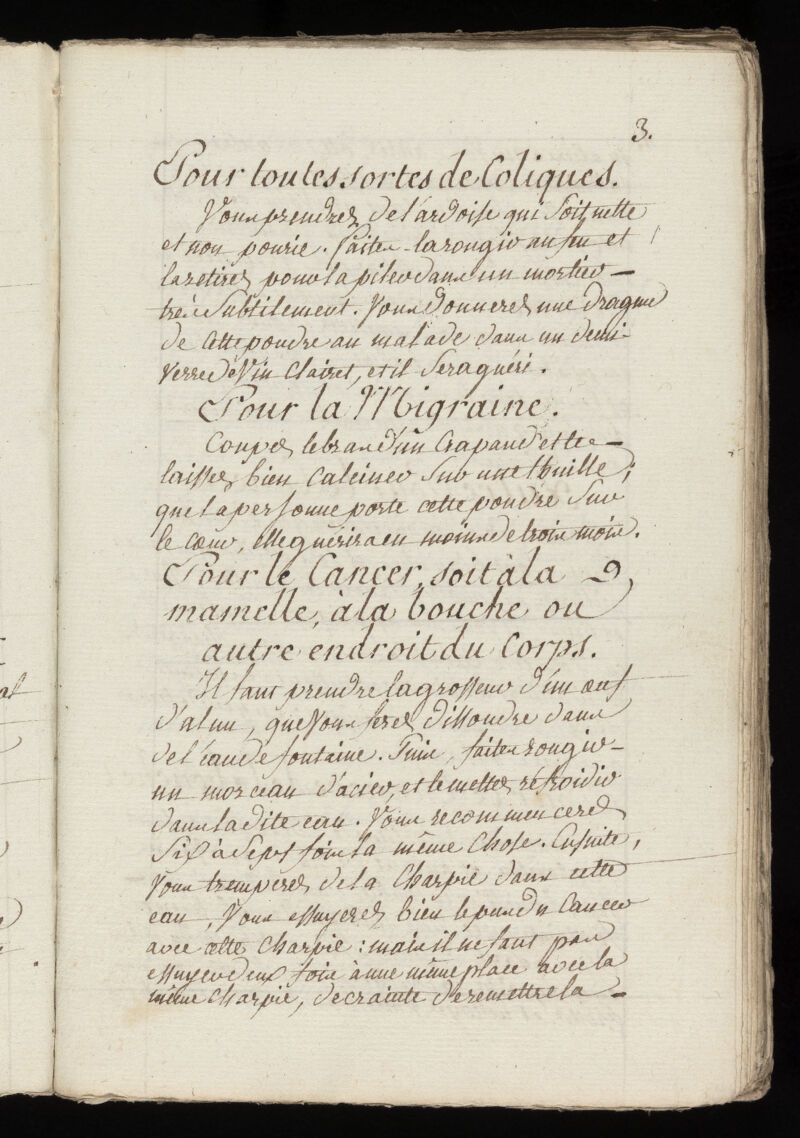 3.
Pour toutes sortes de Coliques.
Vous prendrez de l'ardoise qui soit nette
et non pourie. Faites la rougir au feu et
la retirez pour la piler dans un mortier
très subtilement. Vous donnerez une dragme
de cette poudre au malade dans un demi-
verre de Vin Clairet, et il sera guéri.
Pour la Migraine.
Coupez le bras d'un Crapaud et le
laissez bien Calciner sur une thuille;
que la personne porte cette poudre sur
le cœur, elle guérira en moins de trois mois.
Pour le Cancer, soit à la
mamelle, à la bouche ou
autre endroit du Corps.
Il faut prendre la grosseur d'un œuf
d'alun, que Vous ferez dissoudre dans
de l'eau de fontaine. Puis, faites rougir
un morceau d'acier, et le mettez réfroidir
dans la dite eau. Vous recommencerez
Six à Sept fois la même Chose. Ensuite,
Vous tremperez de la Charpie dans cette
eau, Vous essuyerez bien le pus du Cancer
avec cette Charpie: mais il ne faut pas
essuyer deux fois à une même place avec la
même Charpie, de crainte de remettre la
al